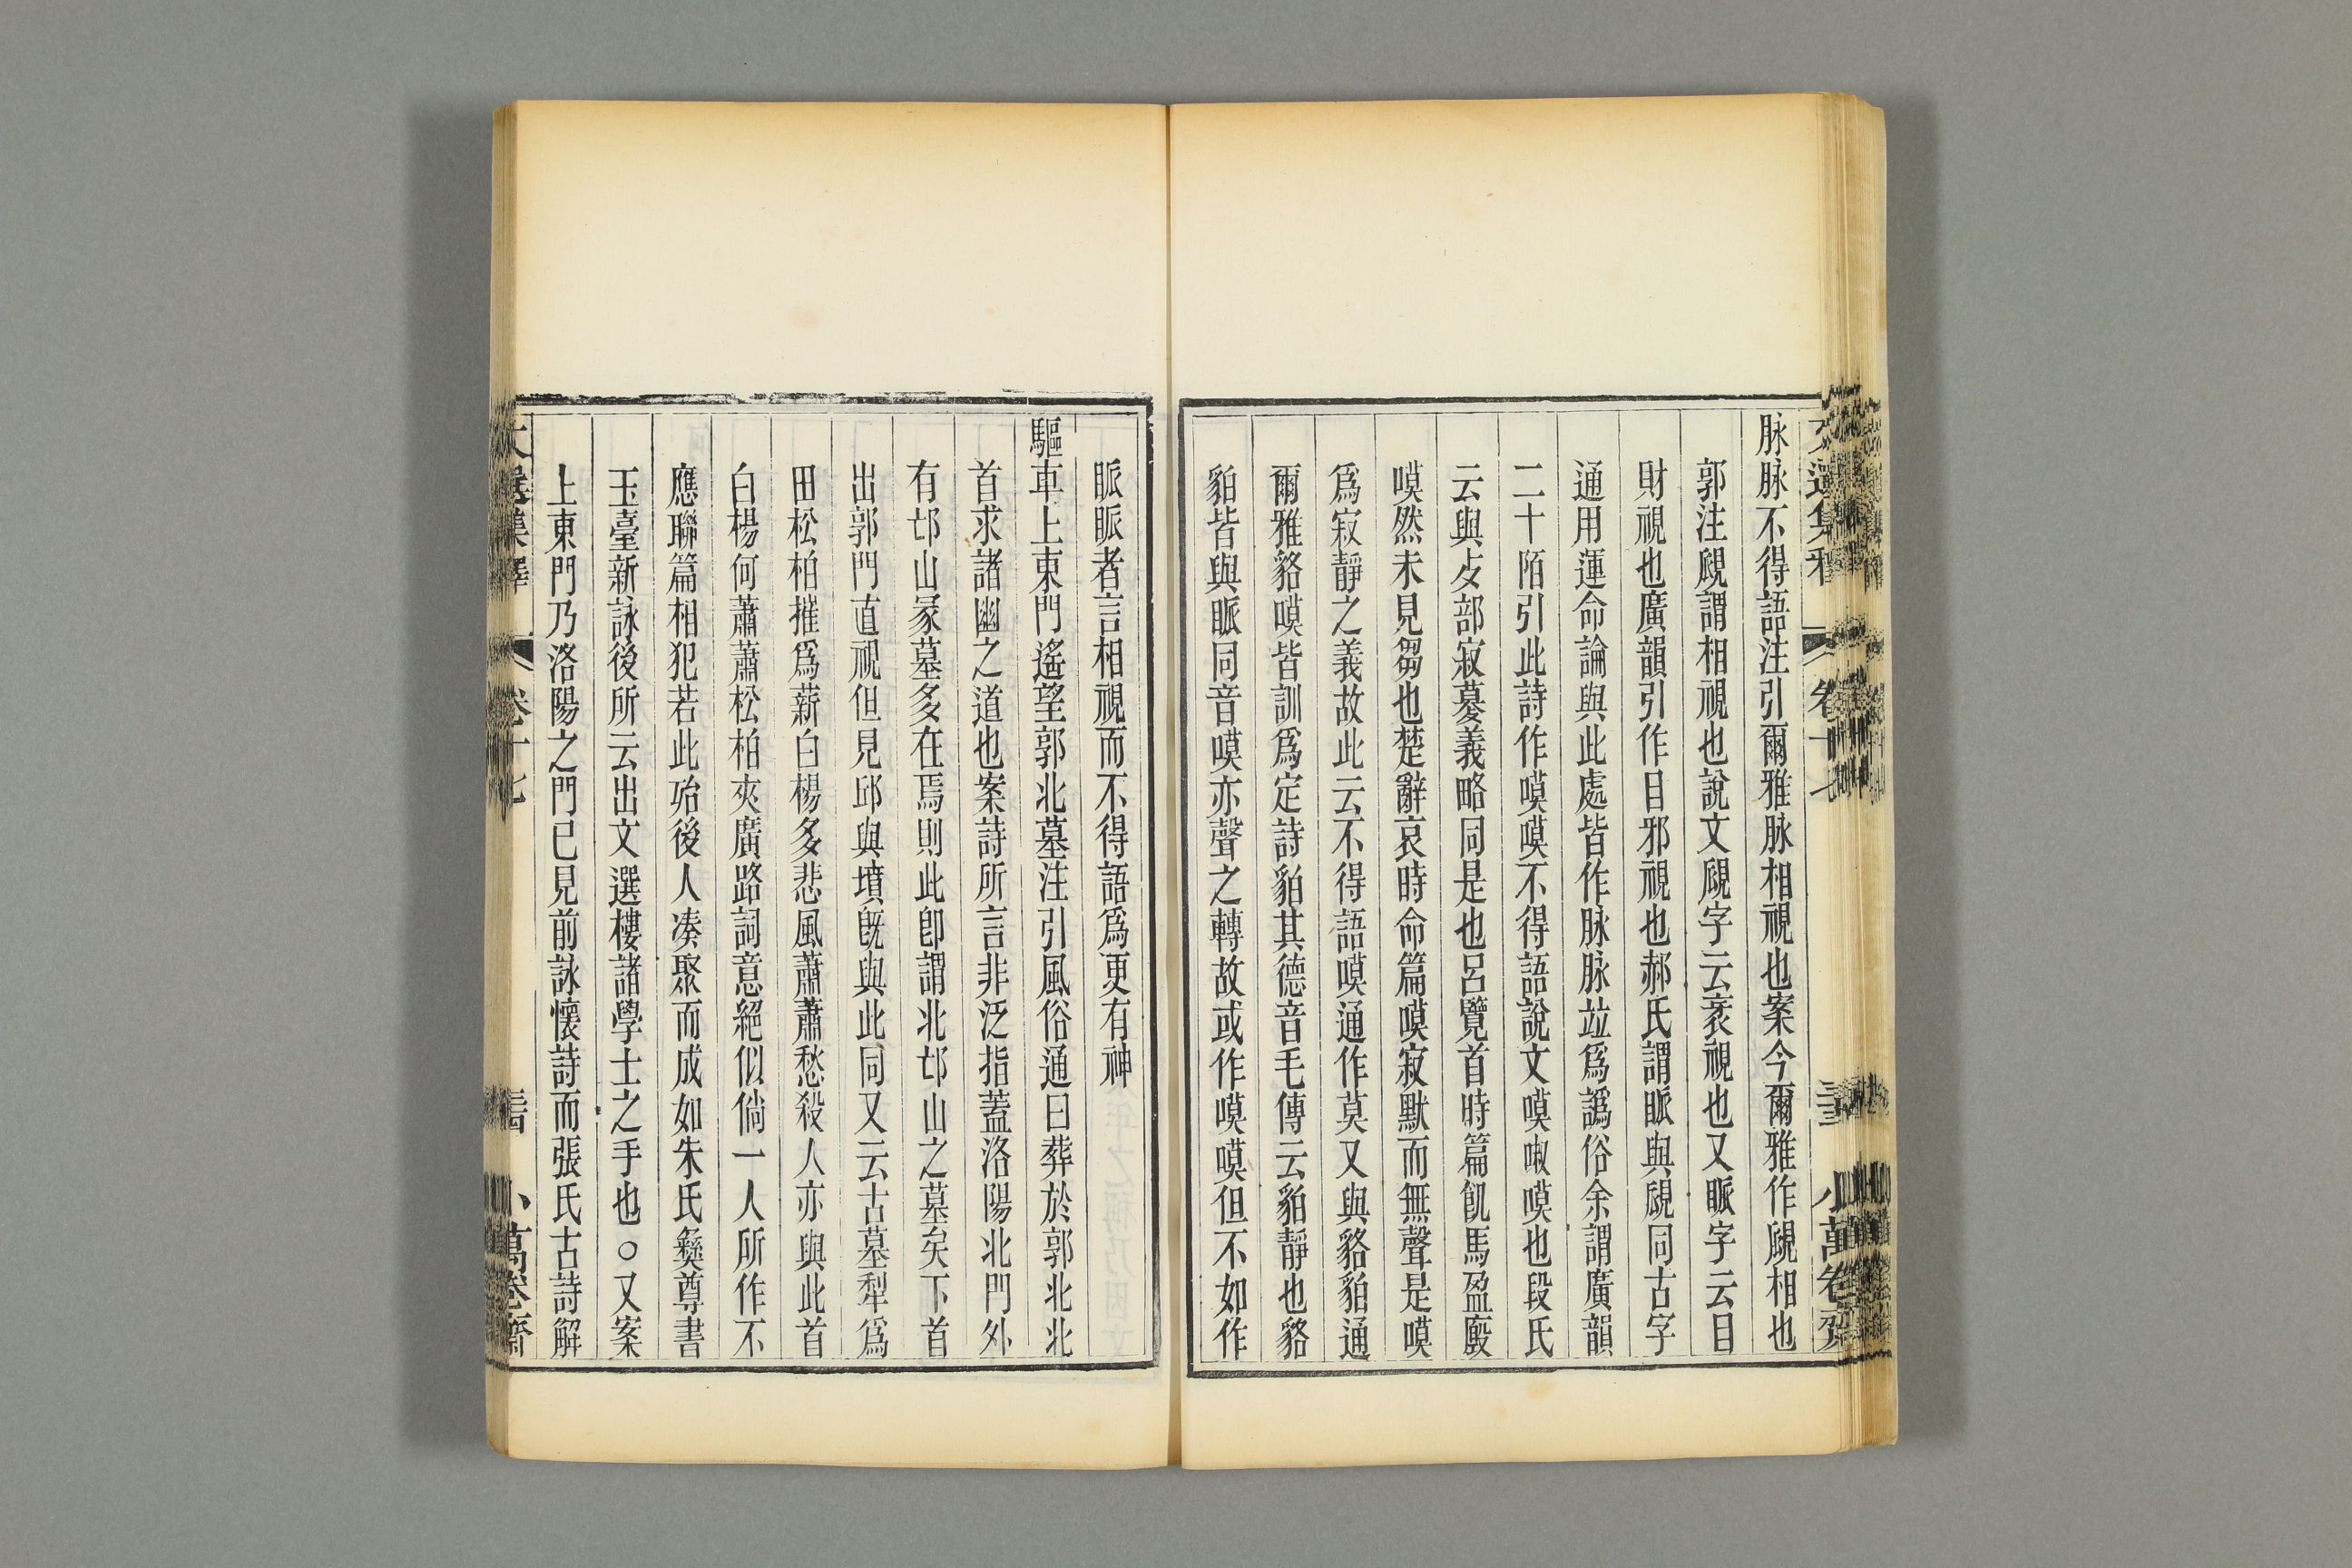 脉脉不得語注引爾雅脉相視也案今爾雅作覛相也
郭注覛謂相視也說文覛字云衺視也又眽字云目
財視也廣韻引作目邪視也郝氏謂眽與覛同古字
通用運命論與此處皆作脉脉竝爲譌俗余謂廣韻
二十陌引此詩作嗼嗼不得語說文嗼㖡嗼也段氏
云與攴部寂蔓義略同是也呂覽首時篇飢馬盈廄
嗼然未見芻也楚辭哀時命篇嗼寂默而無聲是嗼
爲寂靜之義故此云不得語嗼通作莫又與貉貊通
爾雅貉嗼皆訓爲定詩貊其德音毛傳云貊靜也貉
貊皆與眽同音嗼亦聲之轉故或作嗼嗼但不如作
眽眽者言相視而不得語爲更有神
驅車上東門遙望郭北墓注引風俗通曰葬於郭北北
首求諸幽之道也案詩所言非泛指蓋洛陽北門外
有邙山冢墓多在焉則此卽謂北邙山之墓矣下首
出郭門直視但見邱與墳旣與此同又云古墓犁爲
田松柏摧爲薪白楊多悲風蕭蕭愁殺人亦與此首
白楊何蕭蕭松柏夾廣路詞意絕似倘一人所作不
應聯篇相犯若此殆後人湊聚而成如朱氏彝尊書
玉臺新詠後所云出文選樓諸學士之手也○又案
上東門乃洛陽之門已見前詠懷詩而張氏古詩解
選集釋
卷十七
小萬卷齋